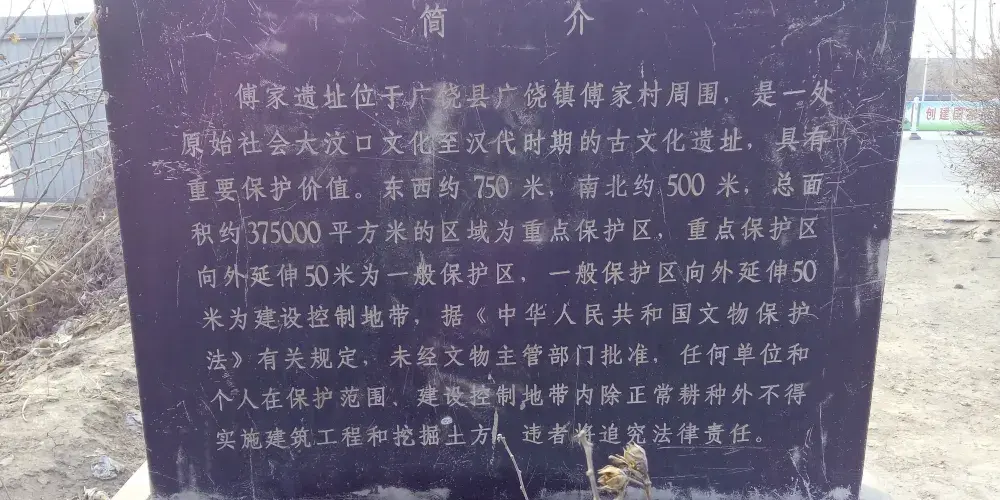 简介
傅家遗址位于广饶县广饶镇傅家村周围，是一处
原始社会大汶口文化至汉代时期的古文化遗址，具有
重要保护价值。东西约750米，南北约500米，总面
积约375000平方米的区域为重点保护区，重点保护区
向外延伸50米为一般保护区，一般保护区向外延伸50
米为建设控制地带，据《中华人民共和国文物保护
法》有关规定，未经文物主管部门批准，任何单位和
个人在保护范围、建设控制地带内除正常耕种外不得
实施建筑工程和挖掘土方，违者将追究法律责任。
创建国